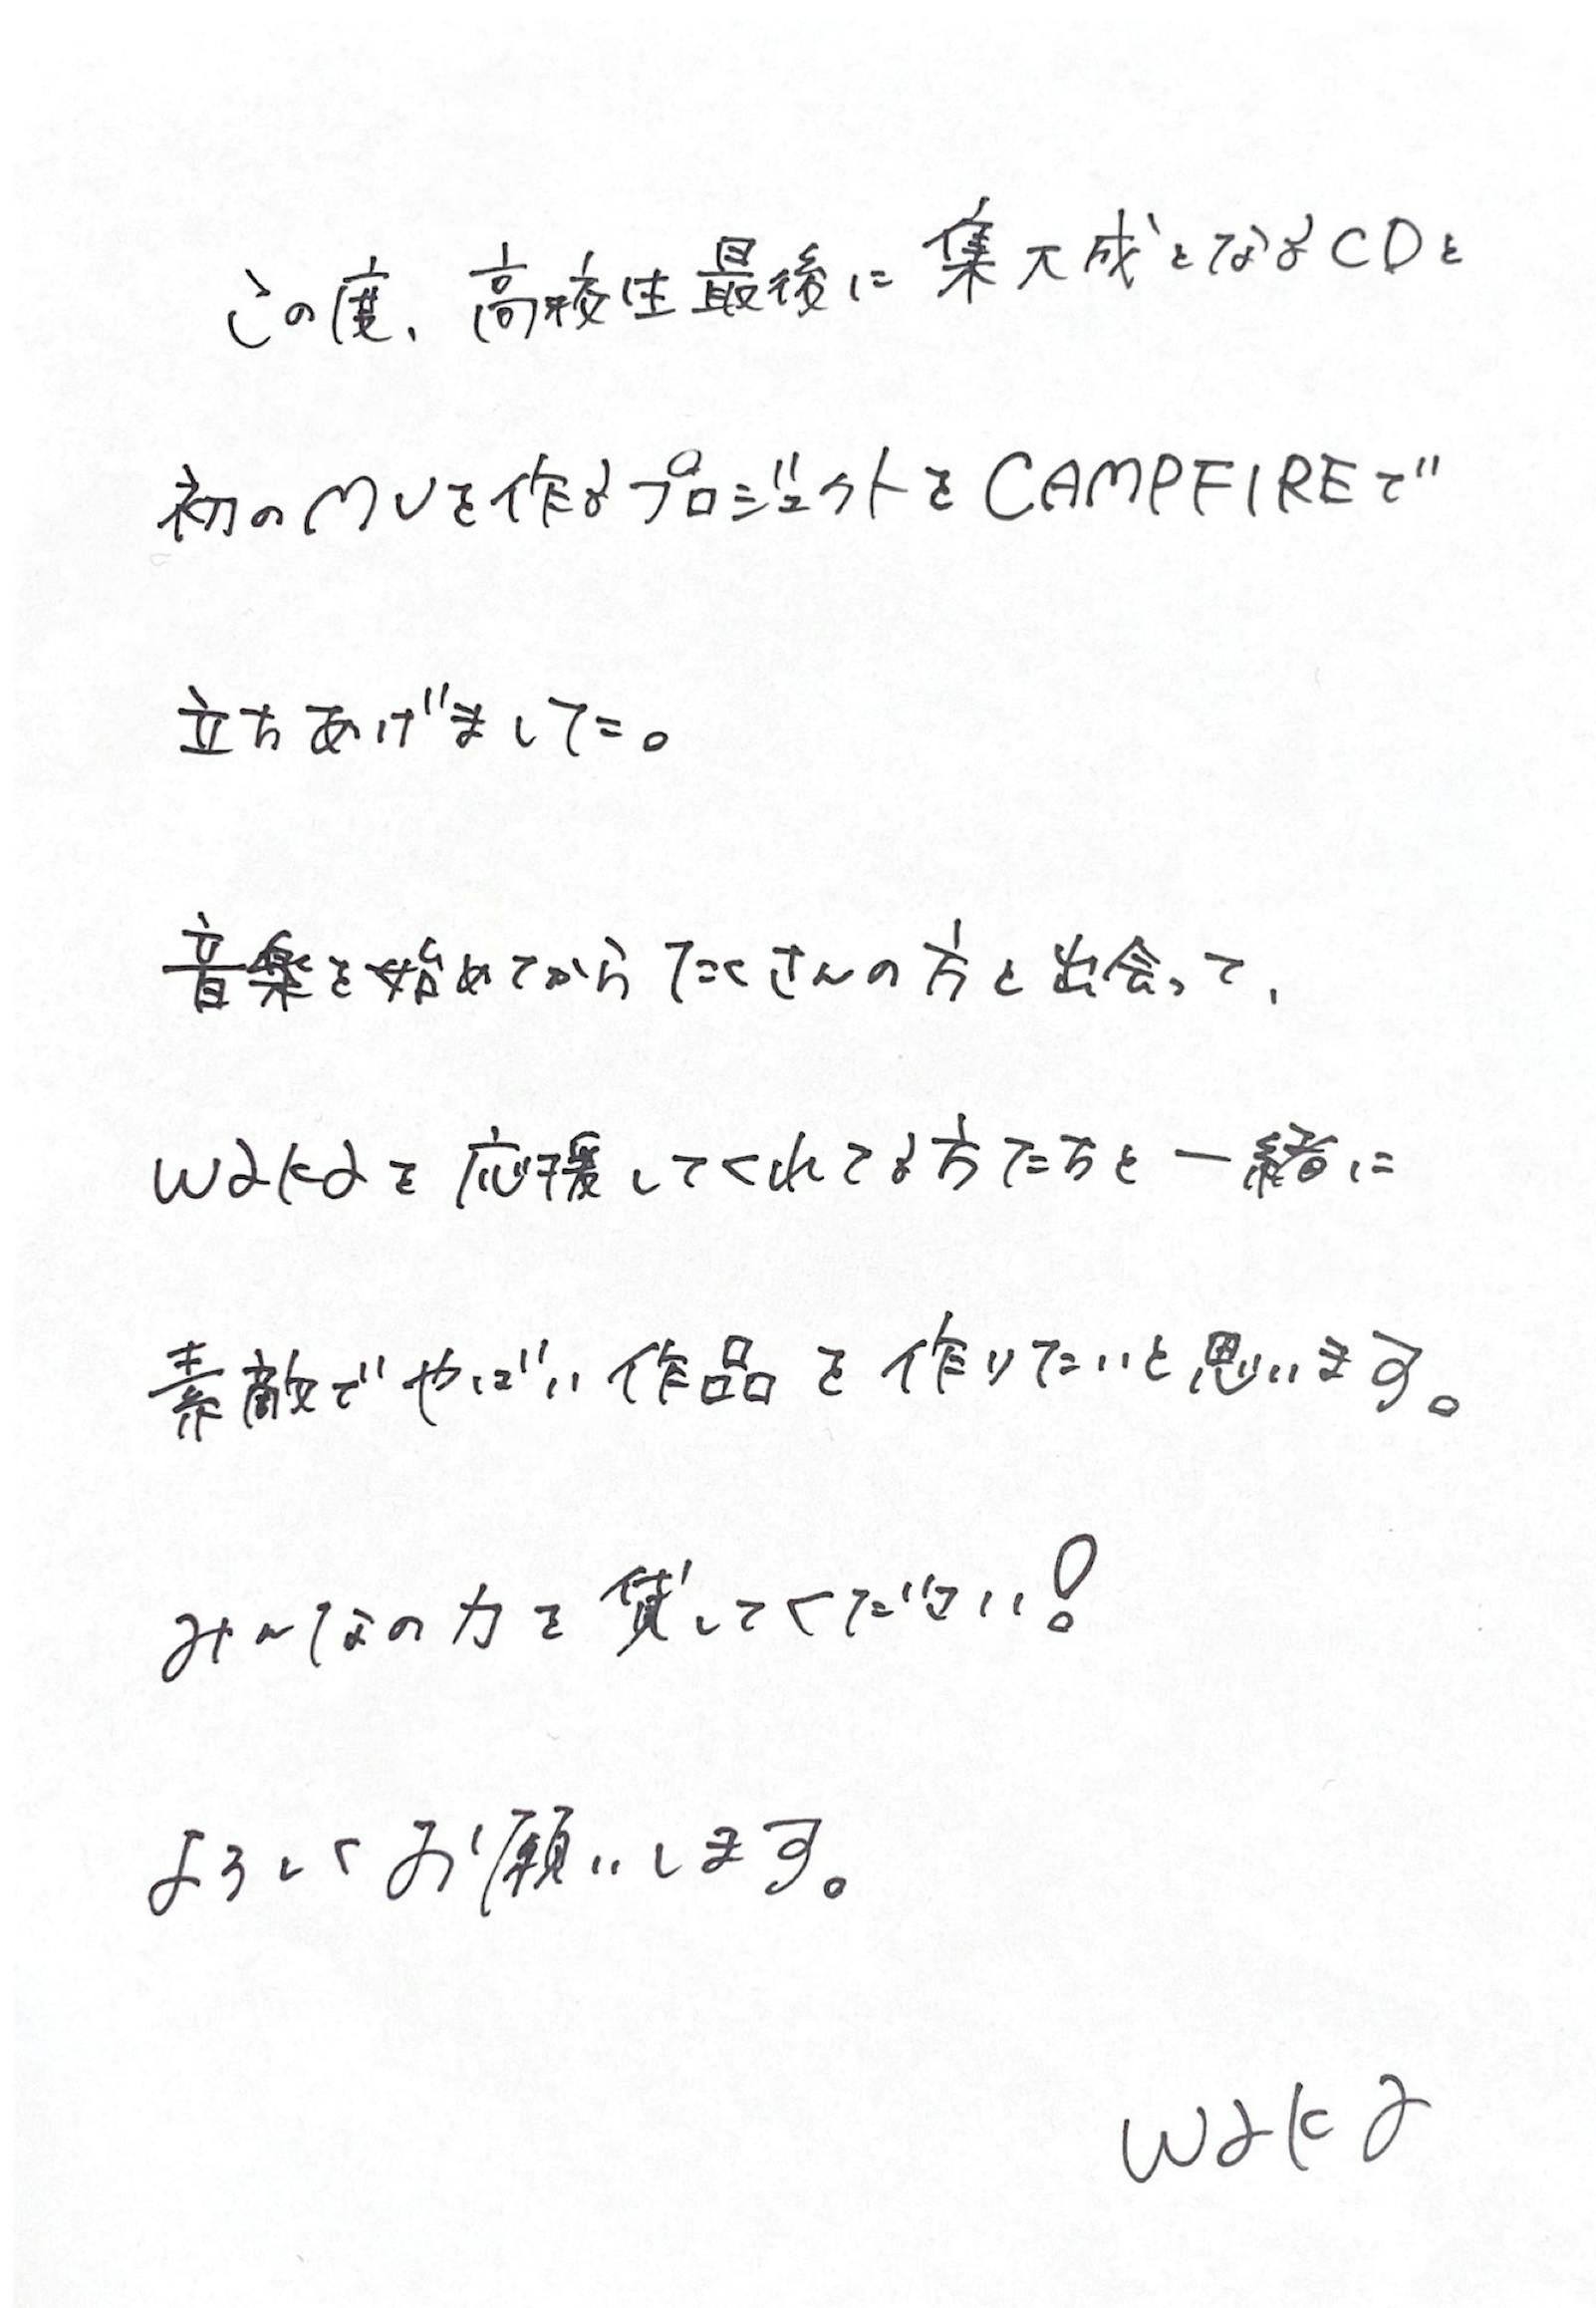 この度、高校生最後に集大成となるCDと
初のMVを作るプロジェクトをCAMPFIREで
立ちあげました。
音楽を始めてからたくさんの方と出会って、
wakaを応援してくれてる方たちと一緒に
素敵でやばい作品を作りたいと思います。
みんなの力を貸してください!
よろしくお願いします。
waka